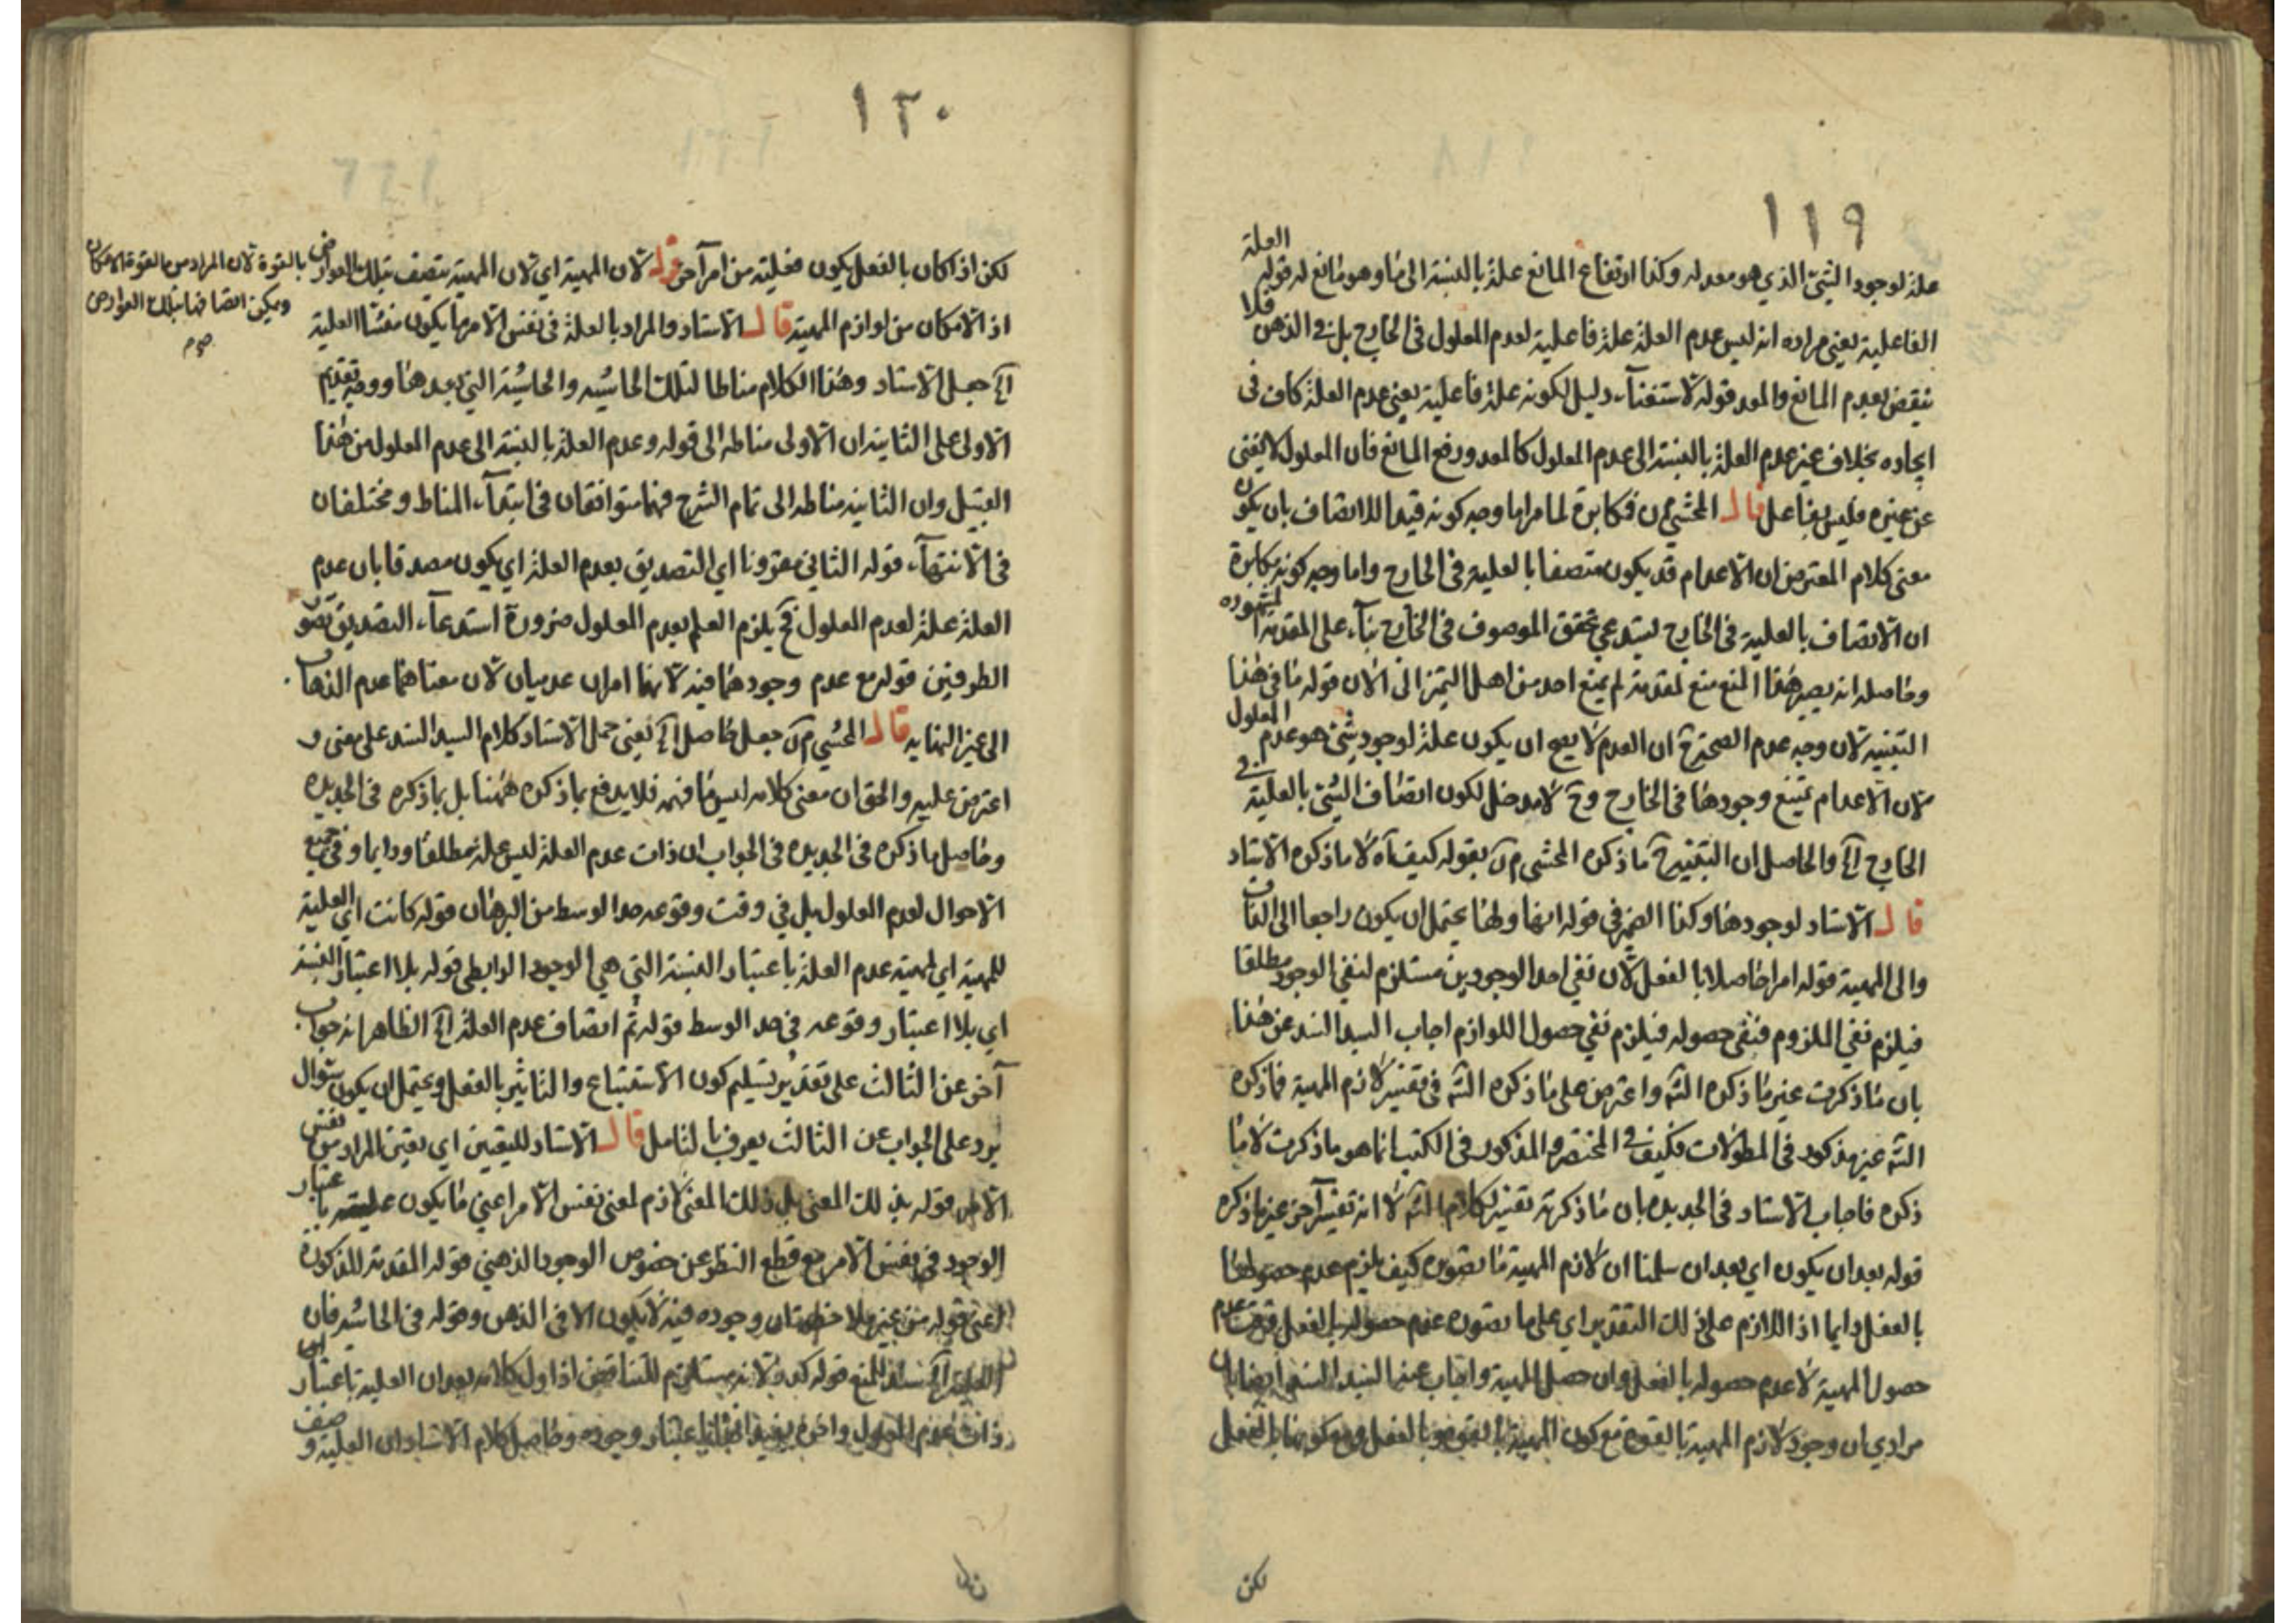 ١١٩
علة لوجود الشيء الذي هو معد له وكذا ارتفاع المانع علة بالنسبة الى ما هو مانع له قوله العلة
الفاعلية يعني مراده انه ليس عدم العلة علة فاعلية لعدم المعلول في الخارج بل في الذهن فلا
ينقض بعدم المانع والمعد قوله لاستغناء دليل لكونه علة فاعلية يعني عدم العلة كاف في
ايجاده بخلاف غير عدم العلة بالنسبة الى عدم المعلول كالمعد ورفع المانع فان المعلول لا يغني
عن غيره فليس بفاعل قال المحشي فمكابرة لما مر اما وجه كونه قيدا للاتصاف بان يكون
معنى كلام المعترض ان الاعدام قد يكون متصفا بالعلية في الخارج واما وجه كونه مكابرة
ان الاتصاف بالعلية في الخارج يستدعي تحقق الموصوف في الخارج بناء على المقدمة المشهورة
وحاصله انه يصير هذا المنع منع لمقدمة لم يمنع احد من اهل التميز الى الان قوله ما في هذا
التنبيه لان وجه عدم الصحة ح ان العدم لا يصح ان يكون علة لوجود شيء هو عدم المعلول
لان الاعدام يمتنع وجودها في الخارج وح لا مدخل لكون اتصاف الشيء بالعلية في
الخارج الخ والحاصل ان التنبيه ح ما ذكره المحشي بقوله كيف اه لا ما ذكره الاستاد
قال الاستاد لوجودها وكذا الضمير في قوله انها ولها يحتمل ان يكون راجعا الى الذات
والى المهية قوله امرا حاصلا بالفعل لان نفي احد الوجودين مستلزم لنفي الوجود مطلقا
فيلزم نفي الملزوم فنفي حصوله فيلزم نفي حصول اللوازم اجاب السيد السند عن هذا
بان ما ذكرت غير ما ذكره الشه واعترض على ما ذكره الشه في تفسير لازم المهية فما ذكره
الشه غير مذكور في المطولات فكيف في المختصر والمذكور في الكتب انما هو ما ذكرت لا ما
ذكره فاجاب الاستاد في الجديدة بان ما ذكرته تفسير لكلام الشه لا انه تفسير آخر غير ما ذكره
قوله بعد ان يكون اي بعد ان سلمنا ان لازم المهية ما تصوره كيف يلزم عدم حصولها
بالفعل دايما اذ اللازم على ذلك التقدير اي على ما تصوره عدم حصوله بالفعل وقت عدم
حصول المهية لا عدم حصوله بالفعل وان حصل المهية واجاب عنها السيد السند ايضا بان
مرادي ان وجود لازم المهية بالقوة مع كون المهية بالقوة وبالفعل مع كونها بالفعل
لكن
١٢٠
لكن اذا كان بالفعل يكون فعليته من امر آخر قوله لان المهية اي لان المهية يتصف بتلك العوارض
بالقوة لان المراد من القوة الامكان
ويمكن اتصافها بتلك العوارض
صح م
اذ الامكان من لوازم المهية قال الاستاد والمراد بالعلة في نفس الامر ما يكون منشأ العلية
الخ جعل الاستاد وهذا الكلام مناطا لتلك الحاشية والحاشية التي بعدها ووجه تقديم
الاولى على الثانية ان الاولى مناطه الى قوله وعدم العلة بالنسبة الى عدم المعلول من هذا
القبيل وان الثانية مناطه الى تمام الشرح فهما متوافقان في ابتداء المناط ومختلفان
في الانتهاء قوله الثاني مقرونا اي التصديق بعدم العلة اي يكون مصدقا بان عدم
العلة علة لعدم المعلول فح يلزم العلم بعدم المعلول ضرورة استدعاء التصديق تصور
الطرفين قوله مع عدم وجودهما فيه لانهما امران عدميان لان معناهما عدم الذهاب
الى غير النهاية قال المحشي جعل حاصل الخ يعني حمل الاستاد كلام السيد السند على معنى و
اعترض عليه والحق ان معنى كلامه ليس ما فهمه فلا يدفع بما ذكره ههنا بل بما ذكره في الجديدة
وحاصل ما ذكره في الجديدة في الجواب ان ذات عدم العلة ليس علة مطلقا ودايما وفي جميع
الاحوال لعدم المعلول بل في وقت وقوعه حد الوسط من البرهان قوله كانت اي العلية
للمهية اي لمهية عدم العلة باعتبار النسبة التي هي الوجود الرابطي قوله بلا اعتبار النسبة
اي بلا اعتبار وقوعه في حد الوسط قوله ثم اتصاف عدم العلة الخ الظاهر انه جواب
آخر عن الثالث على تقدير تسليم كون الاستتباع والتاثير بالفعل ويحتمل ان يكون سئوال
يرد على الجواب عن الثالث يعرف بالتامل قال الاستاد لليقين اي يقين المراد من نفس
الامر قوله بذلك المعنى بل ذلك المعنى لازم لمعنى نفس الامر اعني ما يكون عليته باعتبار
الوجود في نفس الامر مع قطع النظر عن خصوص الوجود الذهني قوله المقدمة المذكورة
اعني قوله من غير ملاحظة ان وجوده فيه لا يكون الا في الذهن وقوله في الحاشية فان
العلية الخ سند للمنع قوله كيف لا انه مستلزم للتناقض اذ اول كلامه بعد ان العلية باعتبار
ذات عدم المعلول وآخره يفيد انها باعتبار وجوده وحاصل كلام الاستاد ان العلية وصف